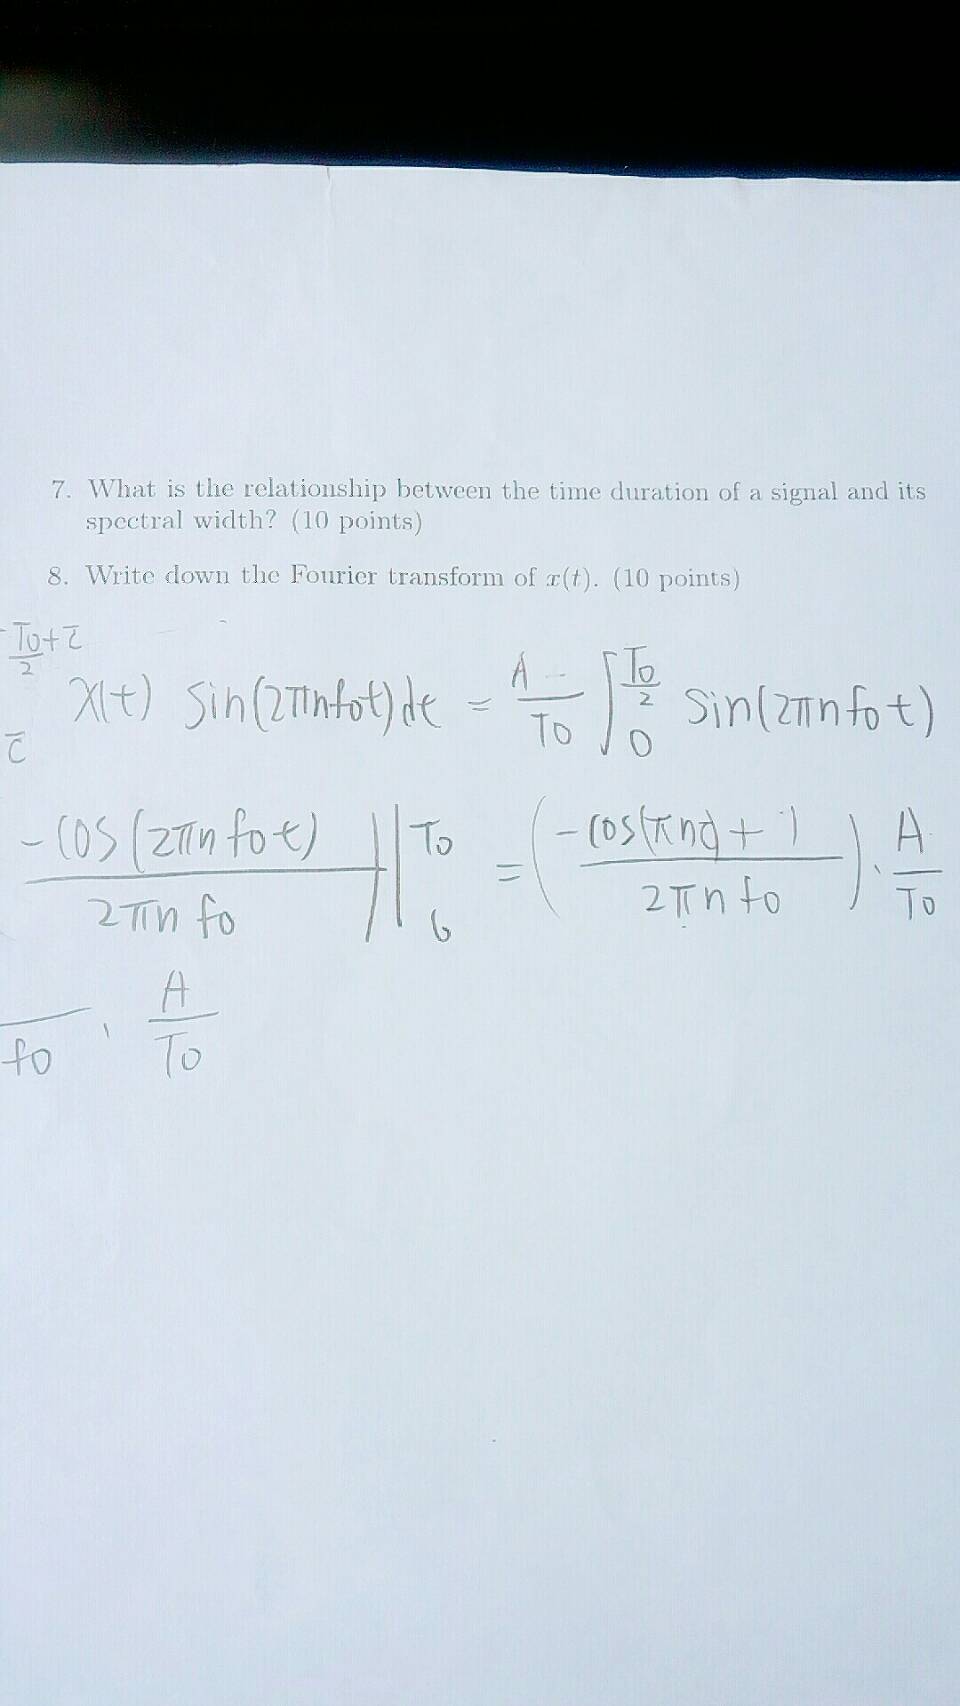 7. What is the relationship between the time duration of a signal and its
spectral width? (10 points)
8. Write down the Fourier transform of x(t). (10 points)
T0/2 + τ
τ x(t) sin(2πnf0t)dt = A/T0 ∫ T0/2 0 sin(2πnf0t)
-cos(2πnf0t) / 2πnf0 | T0 = ( -cos(πn) + 1 / 2πnf0 ) · A/T0
/ f0 · A/T0